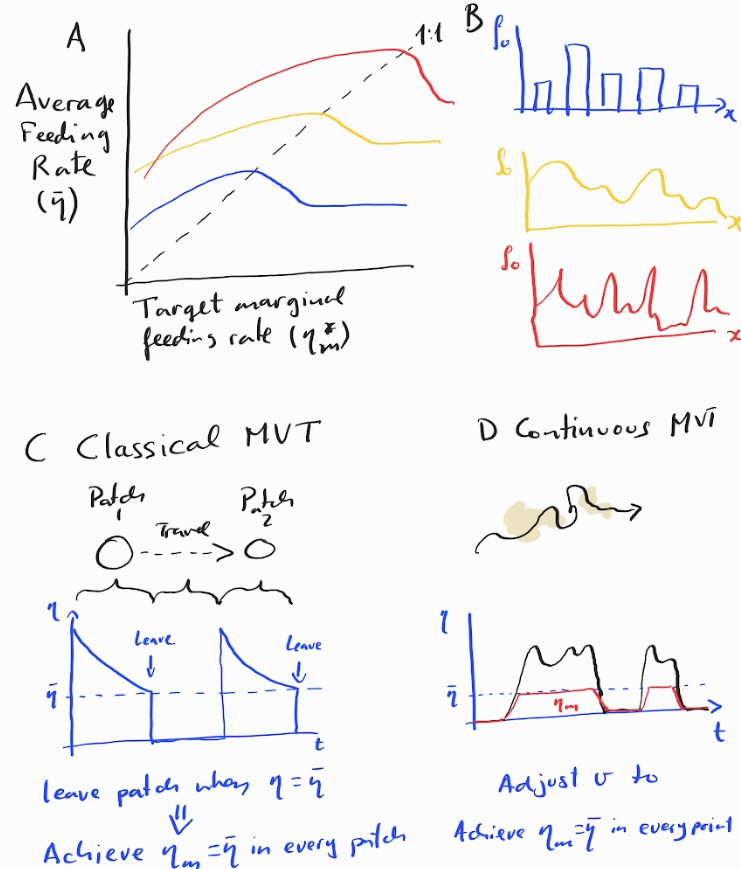 A
1:1
Average
Feeding
Rate
(η̄)
Target marginal
feeding rate (η*m)
B
ρ₀
x
ρ₀
x
ρ₀
x
C Classical MVT
Patch
1
Travel
Patch
2
η
Leave
Leave
η̄
t
Leave patch when η = η̄
⇓
Achieve ηm = η̄ in every patch
D Continuous MVT
η
η̄
ηm
t
Adjust v to
Achieve ηm = η̄ in every point